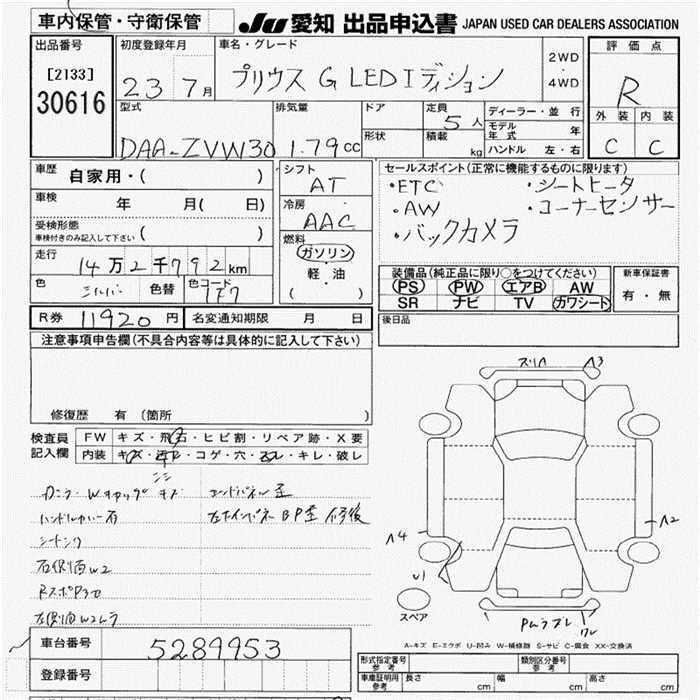 車内保管・守衛保管
JU 愛知 出品申込書 JAPAN USED CAR DEALERS ASSOCIATION
出品番号
[2133]
30616
初度登録年月
23 7月
車名・グレード
プリウス G LEDIディション
2WD
・
4WD
評価点
R
外装 内装
C C
型式
DAA-ZVW30
排気量
1.79cc
ドア
形状
定員
5人
積載
kg
ディーラー・並行
モデル年式 年
ハンドル 左・右
車歴
自家用・( )
車検
年 月( 日)
受検形態
車検付きのみ記入して下さい ( )
走行
14万2千792km
色
シルバー
色替
色コード
1F7
シフト
AT
冷房
AAC
燃料
ガソリン
軽・油
( )
セールスポイント(正常に機能するものに限ります)
・ETC ・シートヒータ
・AW ・コーナーセンサー
・バックカメラ
装備品(純正品に限り○をつけてください)
PS PW エアB AW
SR ナビ TV カワシート
新車保証書
有・無
R券 11920円
名変通知期限 月 日
後日品
注意事項申告欄(不具合内容等は具体的に記入して下さい)
修復歴 有(箇所 )
検査員記入欄
FW キズ・飛石・ヒビ割・リペア跡・X要
内装 キズ・汚レ・コゲ・穴・スレ・キレ・破レ
ハンドルカバー有
右側面W2
A3
A2
A4
U1
スペア
A-キズ E-エクボ U-凹み W-補修跡 S-サビ C-腐食 XX-交換済
車台番号
5289953
登録番号
形式指定番号
参考
類別区分番号
参考
車庫証明用
参考
長さ cm
幅 cm
高さ cm